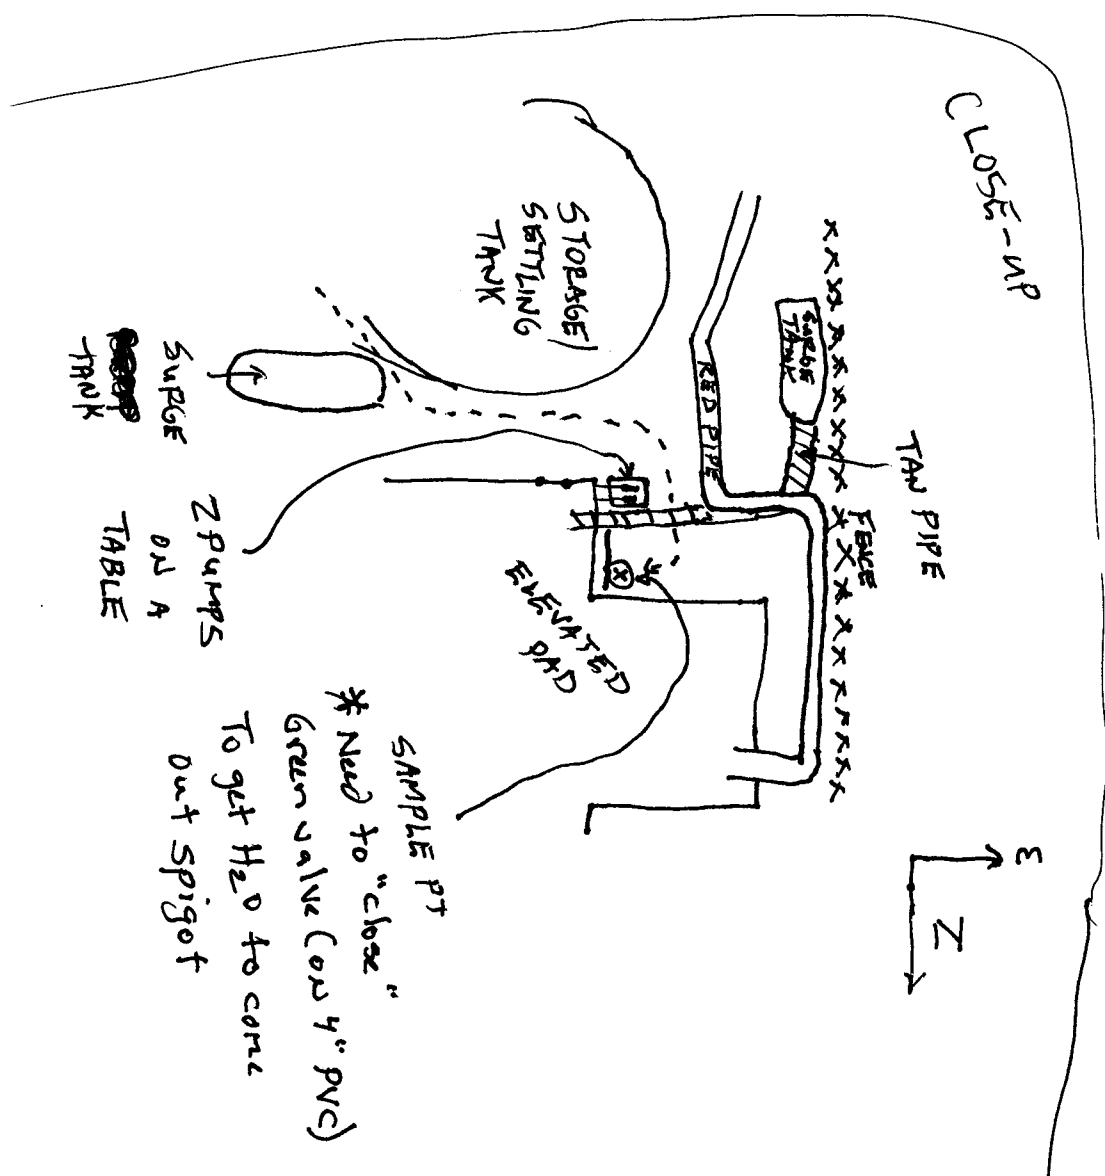 CLOSE-UP
TAN PIPE
FENCE
SURGE
TANK
RED PIPE
STORAGE/
SETTLING
TANK
SURGE
TANK
2 PUMPS
ON A
TABLE
ELEVATED
PAD
SAMPLE PT
* Need to "close"
Green valve (ON 4" PVC)
To get H2O to come
out spigot
E
N